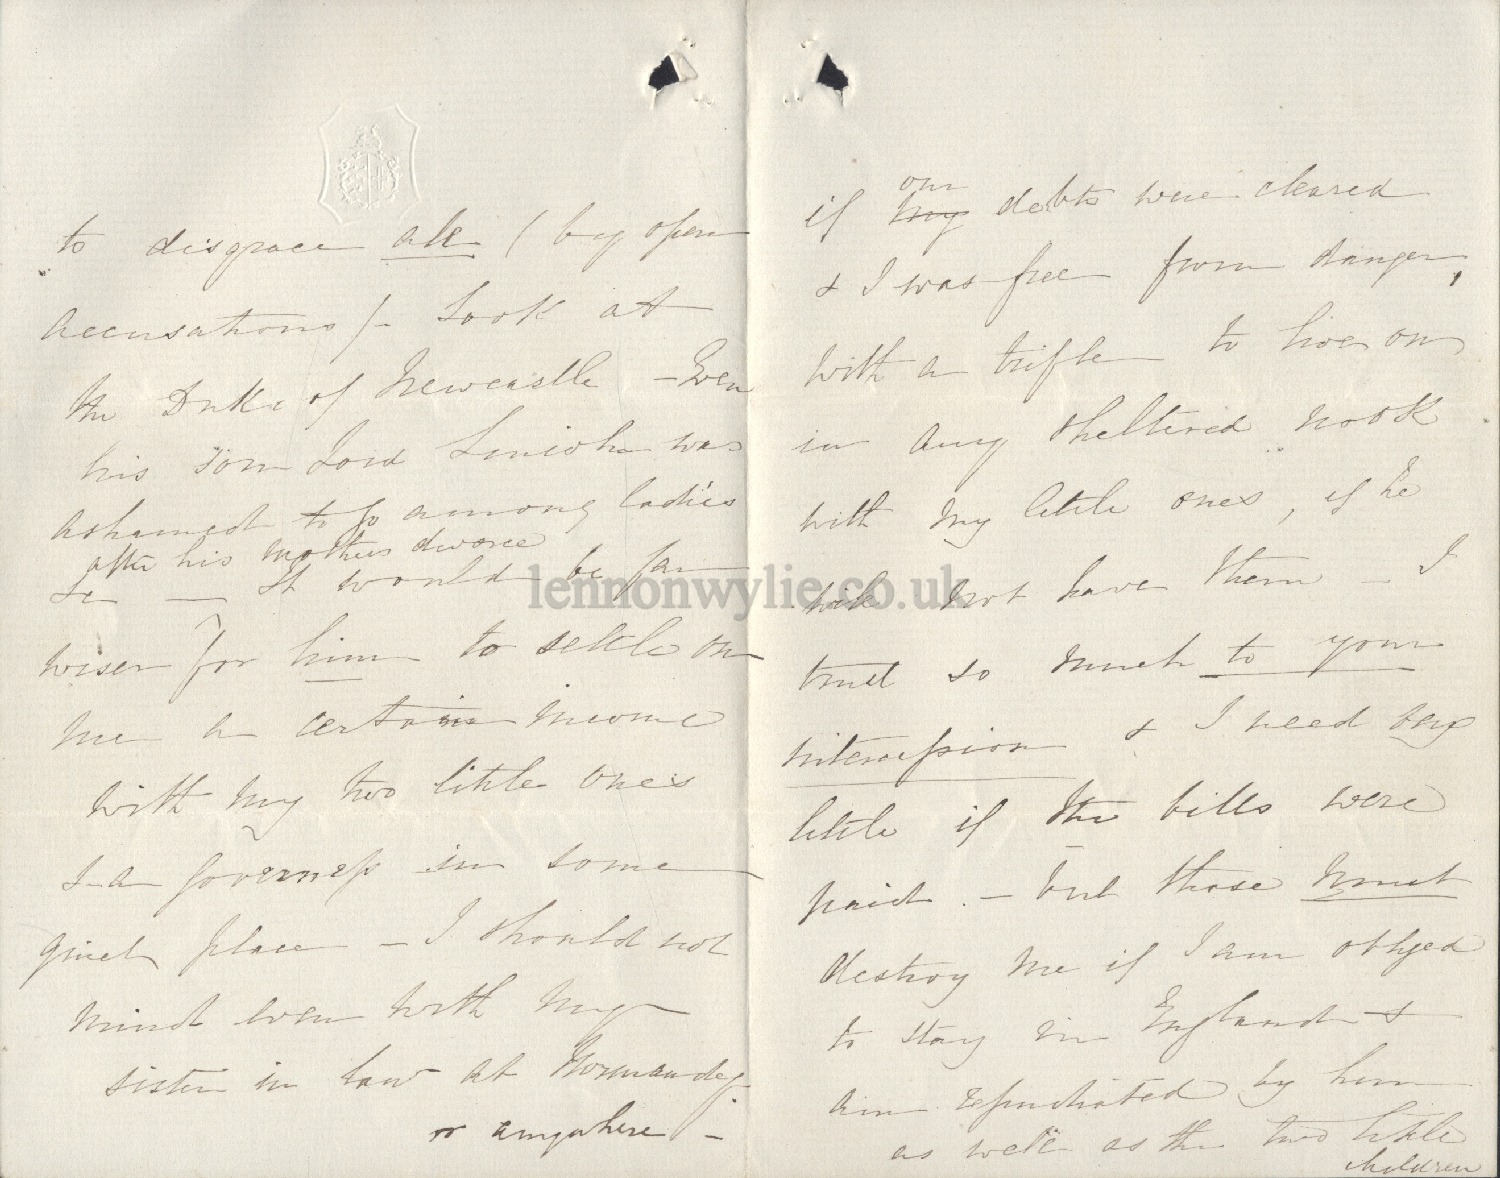 to disgrace all (by open
accusations)- Look at
the Duke of Newcastle - Even
his son Lord Lincoln was
ashamed to go among ladies
after his mothers divorce
&c — It would be far
wiser for him to settle on
me a certain income
with my two little ones
& a governess in some
quiet place - I should not
mind even with my
sister in law at Normandy
or anywhere -
if our my debts were cleared
& I was free from danger,
with a trifle to live on
in any sheltered nook
with my little ones, if he
will not have them - I
trust so much to your
intercession & I need beg
little if the bills were
paid. - but those must
destroy me if I am obliged
to stay in England &
am repudiated by him
as well as the two little
children
lennonwylie.co.uk